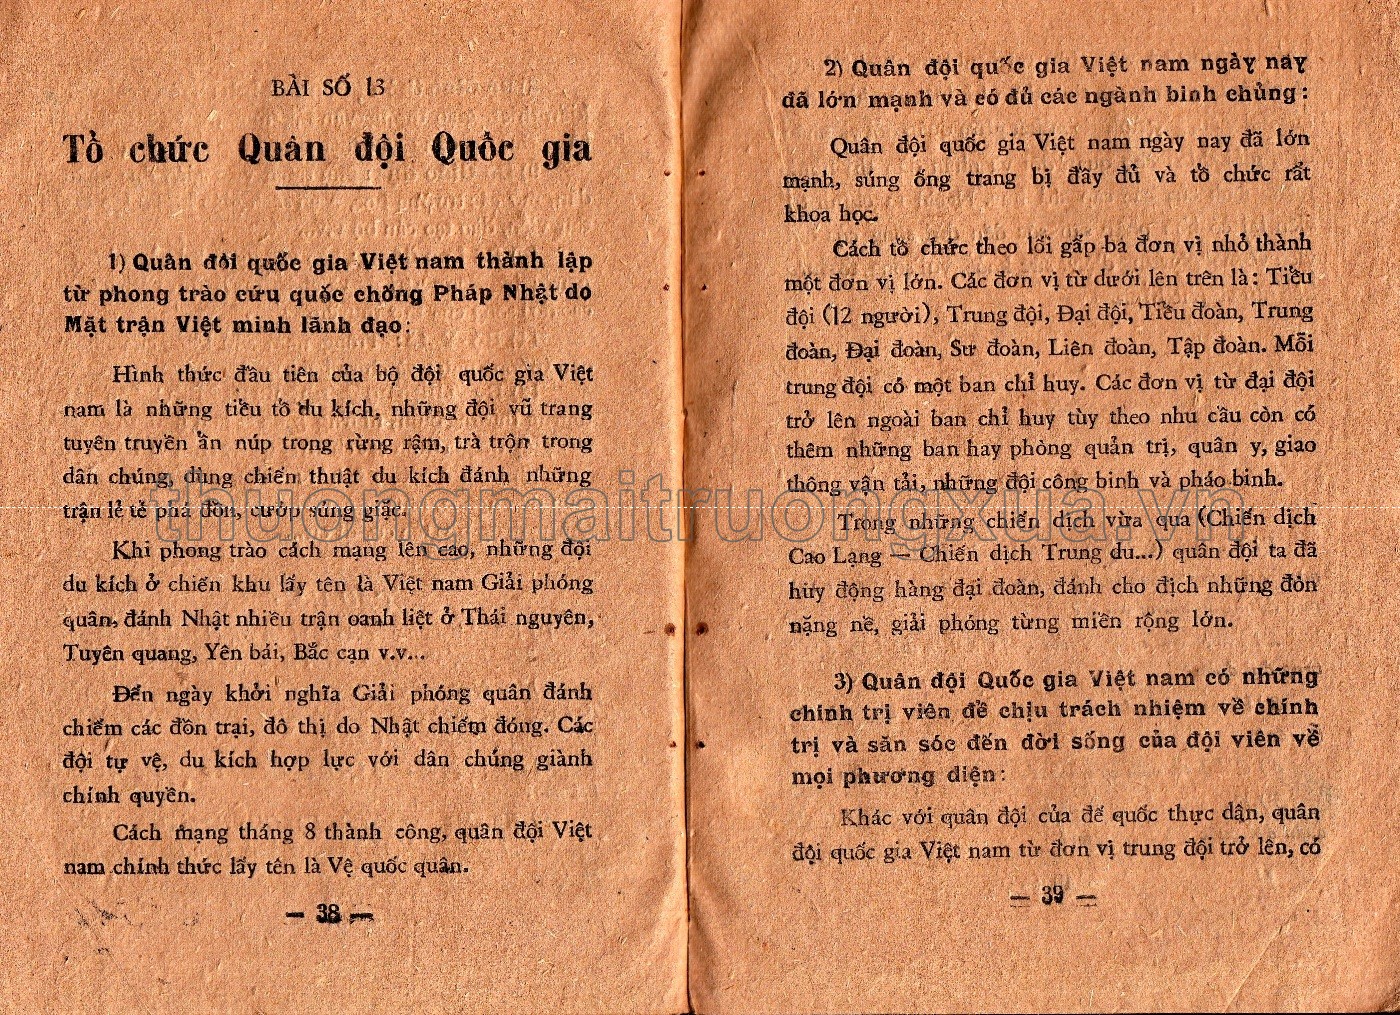 BÀI SỐ 13
Tổ chức Quân đội Quốc gia
1) Quân đôi quốc gia Việt nam thành lập
từ phong trào cứu quốc chống Pháp Nhật do
Mặt trận Việt minh lãnh đạo:
Hình thức đầu tiên của bộ đội quốc gia Việt
nam là những tiểu tổ du kích, những đội vũ trang
tuyên truyền ẩn núp trong rừng rậm, trà trộn trong
dân chúng, dùng chiến thuật du kích đánh những
trận lẻ tẻ phá đồn, cướp súng giặc.
Khi phong trào cách mạng lên cao, những đội
du kích ở chiến khu lấy tên là Việt nam Giải phóng
quân, đánh Nhật nhiều trận oanh liệt ở Thái nguyên,
Tuyên quang, Yên bái, Bắc cạn v.v...
Đến ngày khởi nghĩa Giải phóng quân đánh
chiếm các đồn trại, đô thị do Nhật chiếm đóng. Các
đội tự vệ, du kích hợp lực với dân chúng giành
chính quyền.
Cách mạng tháng 8 thành công, quân đội Việt
nam chính thức lấy tên là Vệ quốc quân.
— 38 —
2) Quân đội quốc gia Việt nam ngày nay
đã lớn mạnh và có đủ các ngành binh chủng:
Quân đội quốc gia Việt nam ngày nay đã lớn
mạnh, súng ống trang bị đầy đủ và tổ chức rất
khoa học.
Cách tổ chức theo lối gấp ba đơn vị nhỏ thành
một đơn vị lớn. Các đơn vị từ dưới lên trên là: Tiểu
đội (12 người), Trung đội, Đại đội, Tiểu đoàn, Trung
đoàn, Đại đoàn, Sư đoàn, Liên đoàn, Tập đoàn. Mỗi
trung đội có một ban chỉ huy. Các đơn vị từ đại đội
trở lên ngoài ban chỉ huy tùy theo nhu cầu còn có
thêm những ban hay phòng quản trị, quân y, giao
thông vận tải, những đội công binh và pháo binh.
Trong những chiến dịch vừa qua (Chiến dịch
Cao Lạng — Chiến dịch Trung du...) quân đội ta đã
huy động hàng đại đoàn, đánh cho địch những đòn
nặng nề, giải phóng từng miền rộng lớn.
3) Quân đội Quốc gia Việt nam có những
chính trị viên để chịu trách nhiệm về chính
trị và săn sóc đến đời sống của đội viên về
mọi phương diện:
Khác với quân đội của đế quốc thực dân, quân
đội quốc gia Việt nam từ đơn vị trung đội trở lên, có
— 39 —
thuongmaitruongxua.vn